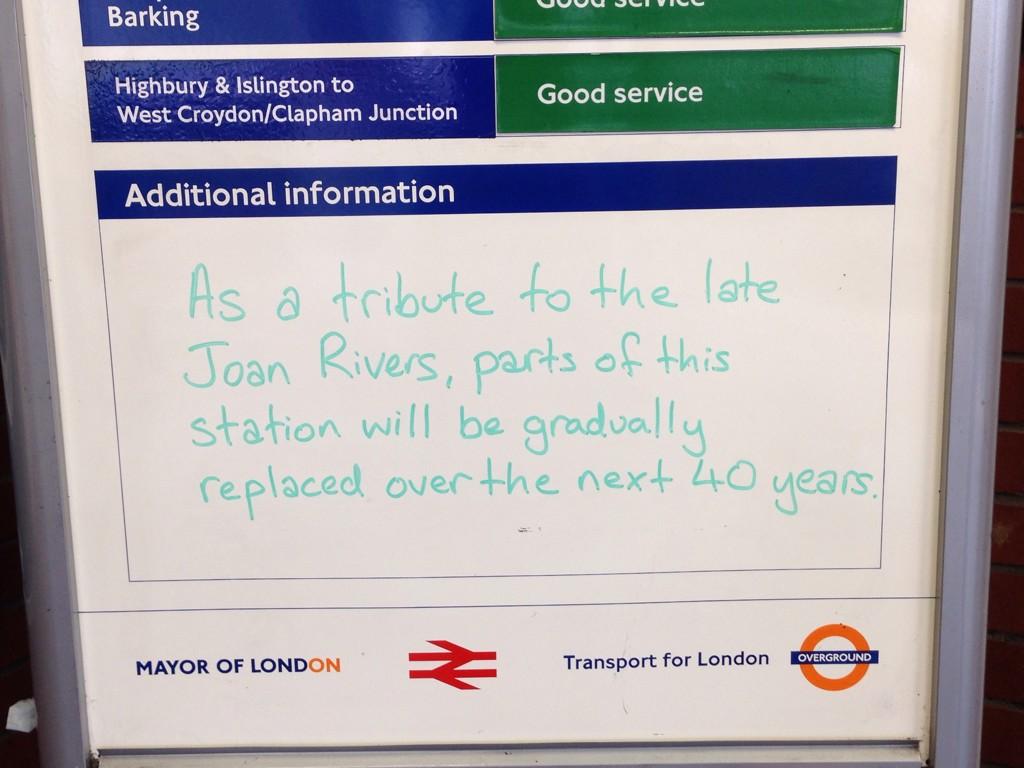 Barking
Good service
Highbury & Islington to
West Croydon/Clapham Junction
Good service
Additional information
As a tribute to the late
Joan Rivers, parts of this
station will be gradually
replaced over the next 40 years.
MAYOR OF LONDON
Transport for London
OVERGROUND